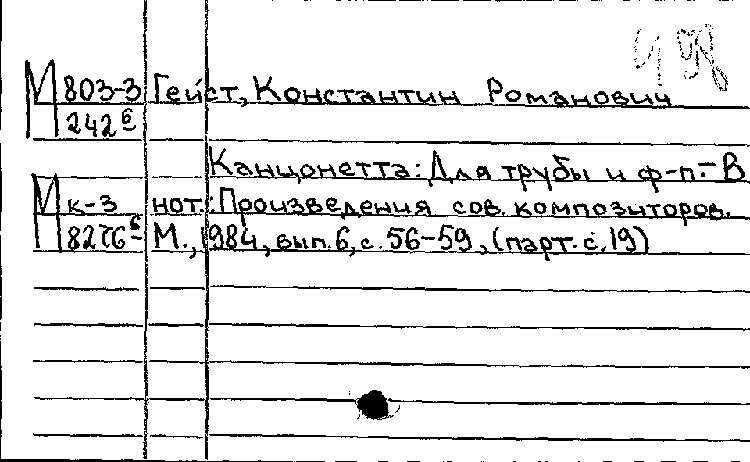 М 803-3 Гейст, Константин Романович
242 б
Канцонетта: Для трубы и ф-п.- В
М к-3 нот.: Произведения сов. композиторов.
8276 б М., 1984, вып. 6, с. 56-59, (парт. с. 19)